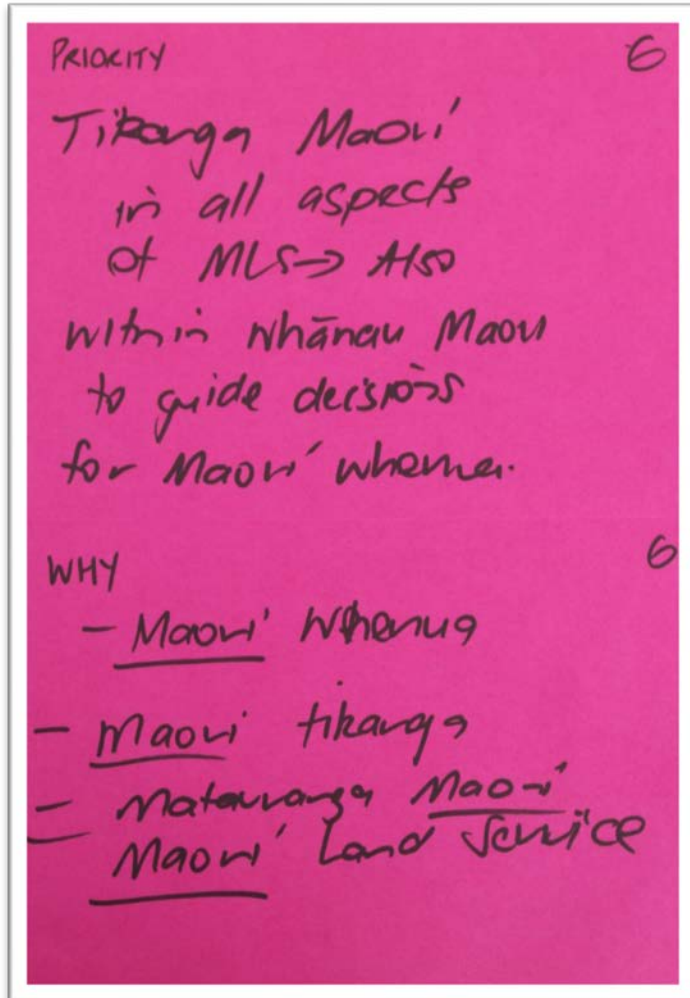 PRIORITY 6
Tikanga Maori
in all aspects
of MLS → Also
within whānau Maori
to guide decisions
for Maori whenua.
WHY 6
- Maori Whenua
- Maori tikanga
- Matauranga Maori
- Maori Land Service